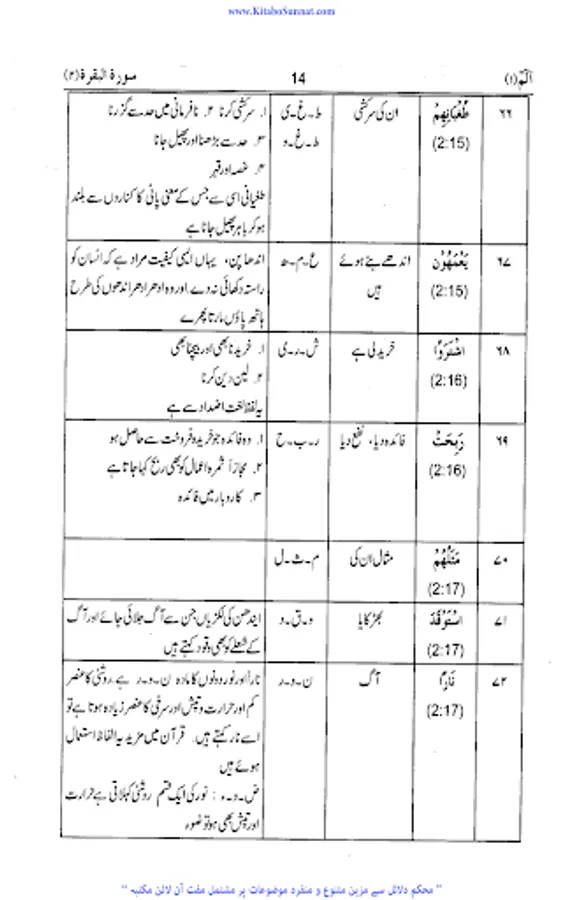 www.KitaboSunnat.com
الٓمّٓ (۱) 14 سورة البقرة (۲)
۶۶ طُغْيَانِهِمْ ان کی سرکشی ط۔غ۔ی ۱. سرکشی کرنا ۲. نافرمانی میں حد سے گزرنا
(2:15) ط۔غ۔و ۳. حد سے بڑھنا اور پھیل جانا
۴. غصہ اور قہر
طغیانی اسی سے جس کے معنی پانی کا کناروں سے بلند
ہو کر باہر پھیل جانا ہے
۶۷ يَعْمَهُوْن اندھے بنے ہوئے ع۔م۔ھ اندھا پن، یہاں ایسی کیفیت مراد ہے کہ انسان کو
(2:15) ہیں راستہ دکھائی نہ دے اور وہ ادھر ادھر اندھوں کی طرح
ہاتھ پاؤں مارتا پھرے
۶۸ اشْتَرَوُا خرید لی ہے ش۔ر۔ی ۱. خریدنا بھی اور بیچنا بھی
(2:16) ۲. لین دین کرنا
یہ لفظ لغت اضداد سے ہے
۶۹ رَبِحَتْ فائدہ دیا، نفع دیا ر۔ب۔ح ۱. وہ فائدہ جو خرید و فروخت سے حاصل ہو
(2:16) ۲. مجازاً ثمرہ اعمال کو بھی ربح کہا جاتا ہے
۳. کاروبار میں فائدہ
۷۰ مَثَلُهُمْ مثال ان کی م۔ث۔ل
(2:17)
۷۱ اسْتَوْقَدَ بھڑکایا و۔ق۔د ایندھن کی لکڑیاں جن سے آگ جلائی جائے اور آگ
(2:17) کے شعلے کو بھی وقود کہتے ہیں
۷۲ نَارًا آگ ن۔و۔ر نار اور نور دونوں کا مادہ ن۔و۔ر ہے روشنی کا عنصر
(2:17) کم اور حرارت و تپش اور سرخی کا عنصر زیادہ ہوتا ہے تو
اسے نار کہتے ہیں۔ قرآن میں مزید یہ الفاظ استعمال
ہوئے ہیں
ض۔و۔ء : نور کی ایک قسم روشنی کہلاتی ہے حرارت
اور تپش بھی ہو تو ضوء
" محکم دلائل سے مزین متنوع و منفرد موضوعات پر مشتمل مفت آن لائن مکتبہ "